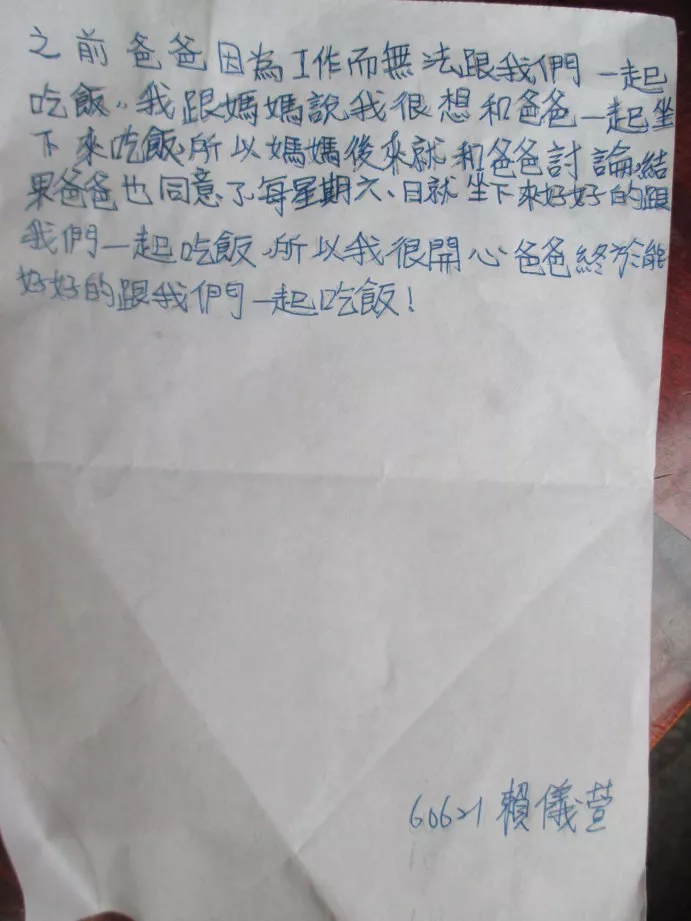 之前爸爸因為工作而無法跟我們一起
吃飯。我跟媽媽說我很想和爸爸一起坐
下來吃飯,所以媽媽後來就和爸爸討論,結
果爸爸也同意了,每星期六、日就坐下來好好的跟
我們一起吃飯,所以我很開心爸爸終於能
好好的跟我們一起吃飯!
60621 賴儀萱